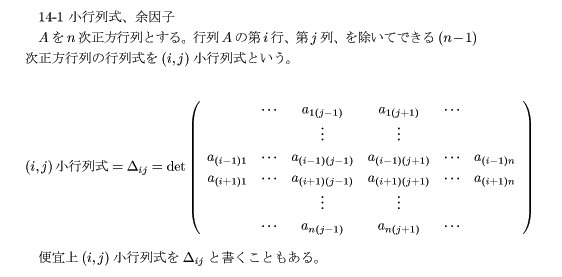 14-1 小行列式、余因子
A を n 次正方行列とする。行列 A の第 i 行、第 j 列、を除いてできる (n−1)
次正方行列の行列式を (i, j) 小行列式という。
⋯ a_{1(j−1)} a_{1(j+1)} ⋯
⋮ ⋮
a_{(i−1)1} ⋯ a_{(i−1)(j−1)} a_{(i−1)(j+1)} ⋯ a_{(i−1)n}
(i, j) 小行列式 = Δ_{ij} = det
a_{(i+1)1} ⋯ a_{(i+1)(j−1)} a_{(i+1)(j+1)} ⋯ a_{(i+1)n}
⋮ ⋮
⋯ a_{n(j−1)} a_{n(j+1)} ⋯
便宜上 (i, j) 小行列式を Δ_{ij} と書くこともある。